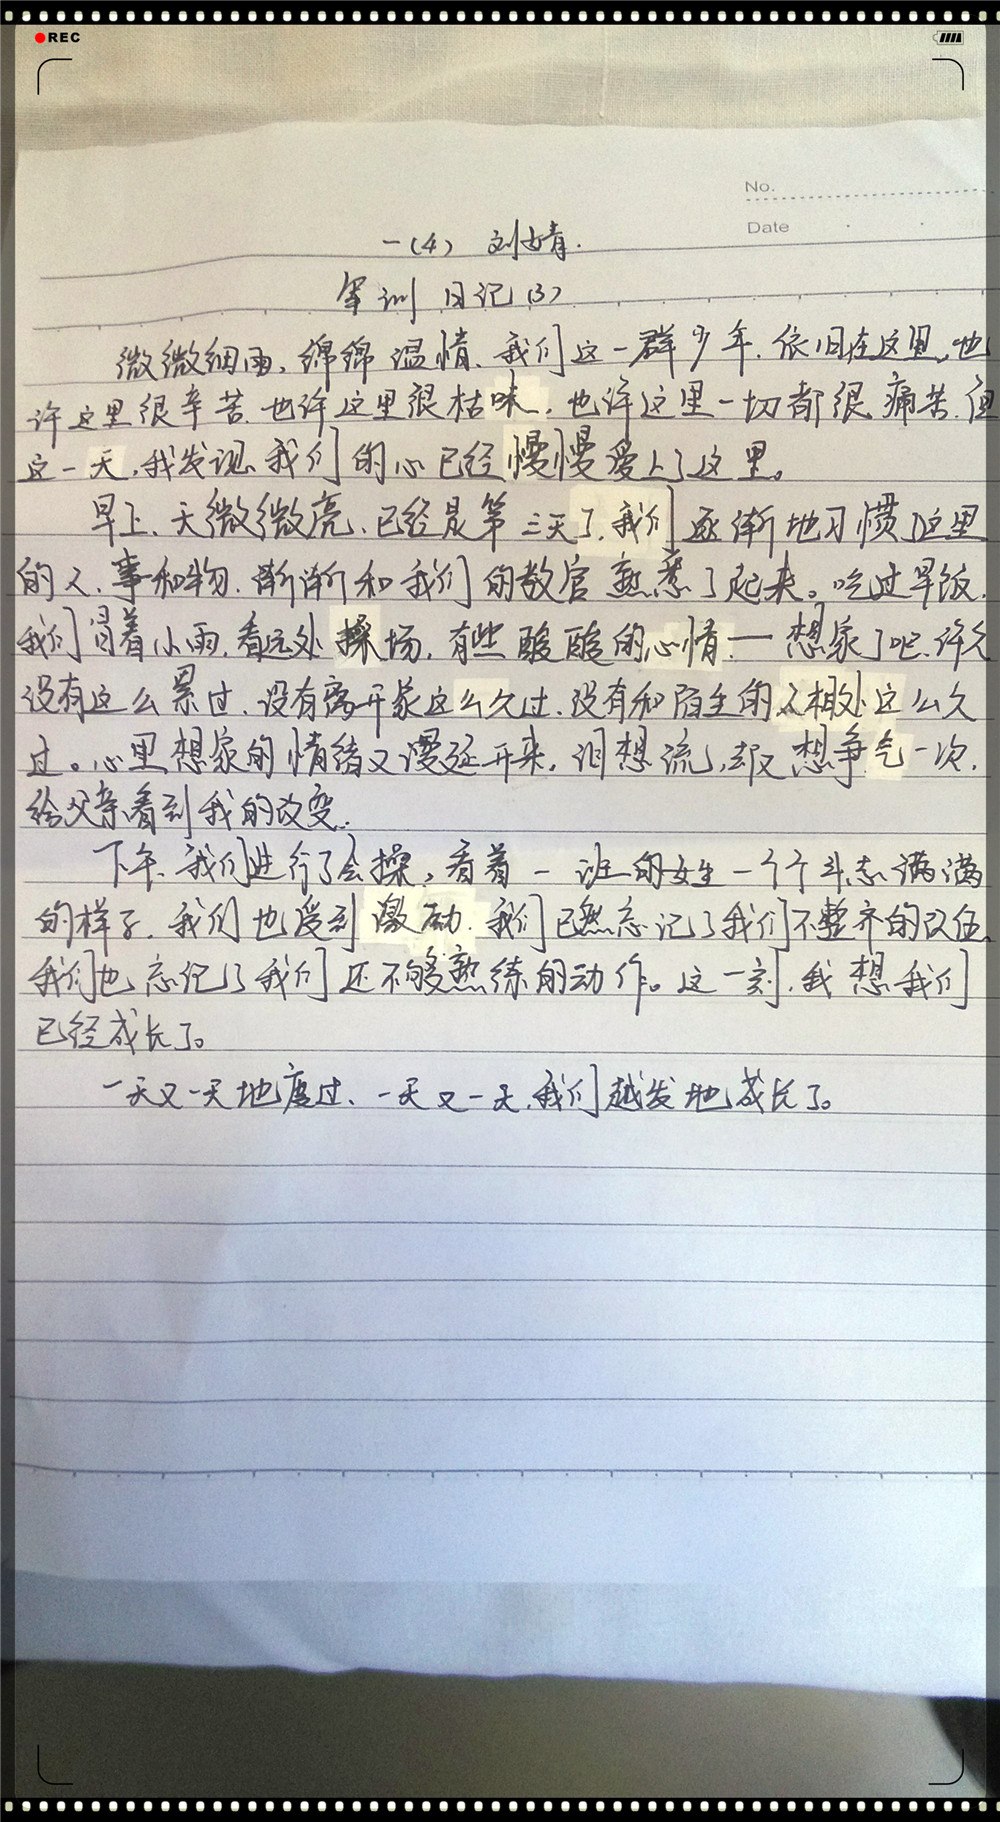 REC
No.
Date
一(4) 刘婧.
军训 日记(3)
微微细雨,绵绵温情,我们这一群少年,依旧在这里,也
许这里很辛苦,也许这里很枯味,也许这里一切都很痛苦,但
这一天,我发现,我们的心已经慢慢爱上了这里。
早上,天微微亮,已经是第三天了,我们逐渐地习惯了这里
的人,事和物,渐渐和我们的教官熟悉了起来。吃过早饭,
我们冒着小雨,看远处操场,有些酸酸的心情——想家了吧,许久
没有这么累过,没有离开家这么久过,没有和陌生的人相处这么久
过。心里想家的情绪又漫延开来,泪想流,却又想争气一次,
给父亲看到我的改变.
下午,我们进行了会操,看着一班的女生一个个斗志满满
的样子,我们也受到激励,我们已然忘记了我们不整齐的步伍,
我们也忘记了我们还不够熟练的动作。这一刻,我想我们
已经成长了。
一天又一天地度过,一天又一天,我们越发地成长了。